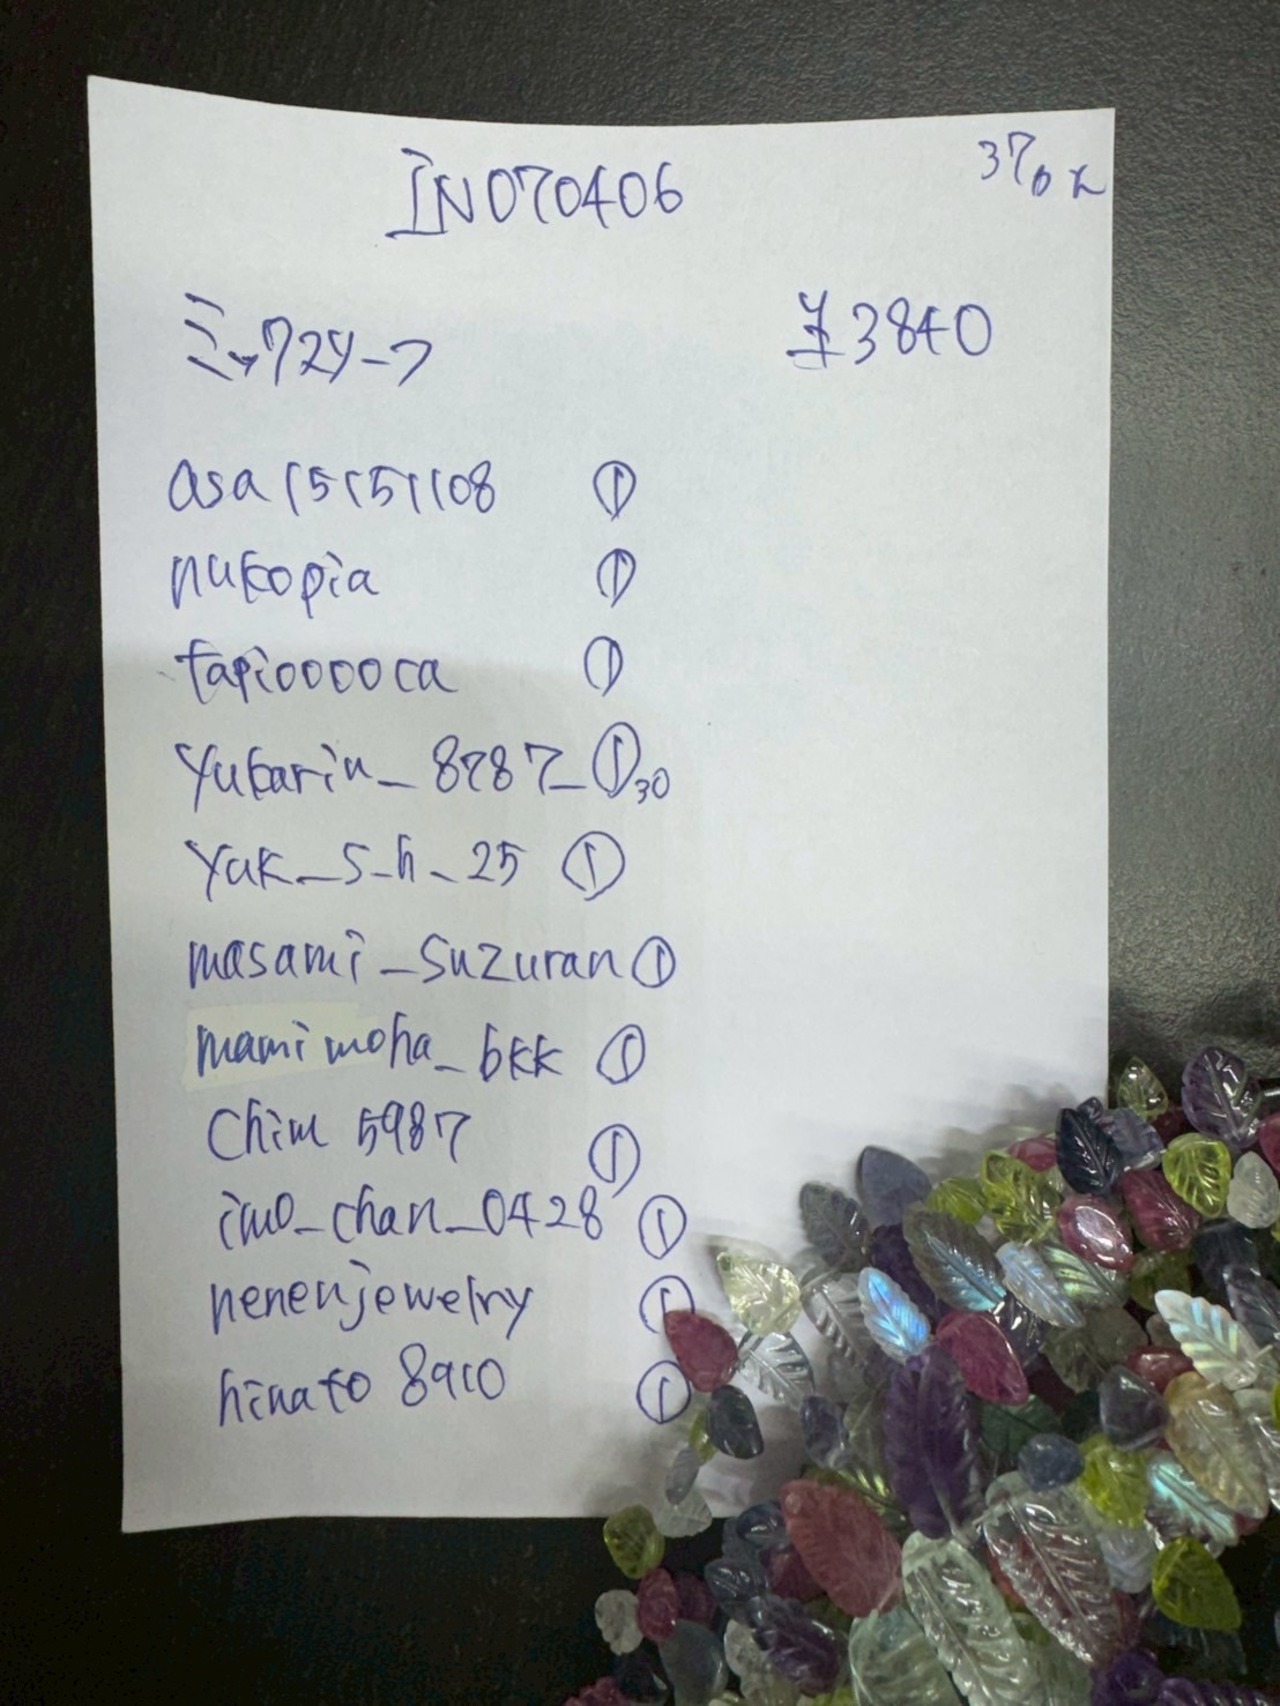 IN070406
37px
ミックスリーフ ¥3840
asa15151108 ①
nukopia ①
tapiooooca ①
yukarin_8787_ ① 30
yuk_s_h_25 ①
masami_suzuran ①
mamimoha_bkk ①
chim5987 ①
imo_chan_0428 ①
nenenjewelry ①
hinato8910 ①